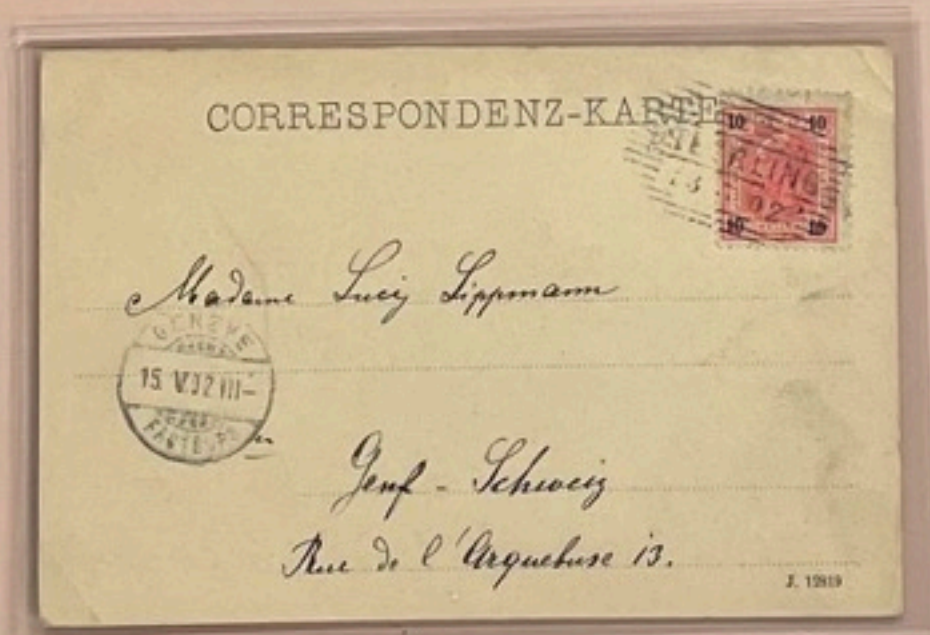 CORRESPONDENZ-KARTE
10 10
RLING
13 02
10 10
Madame Lucy Lippmann
GENÈVE
15. V. 02 III-
FACTEURS
Genf - Schweiz
Rue de l'Arquebuse 13.
J. 12819